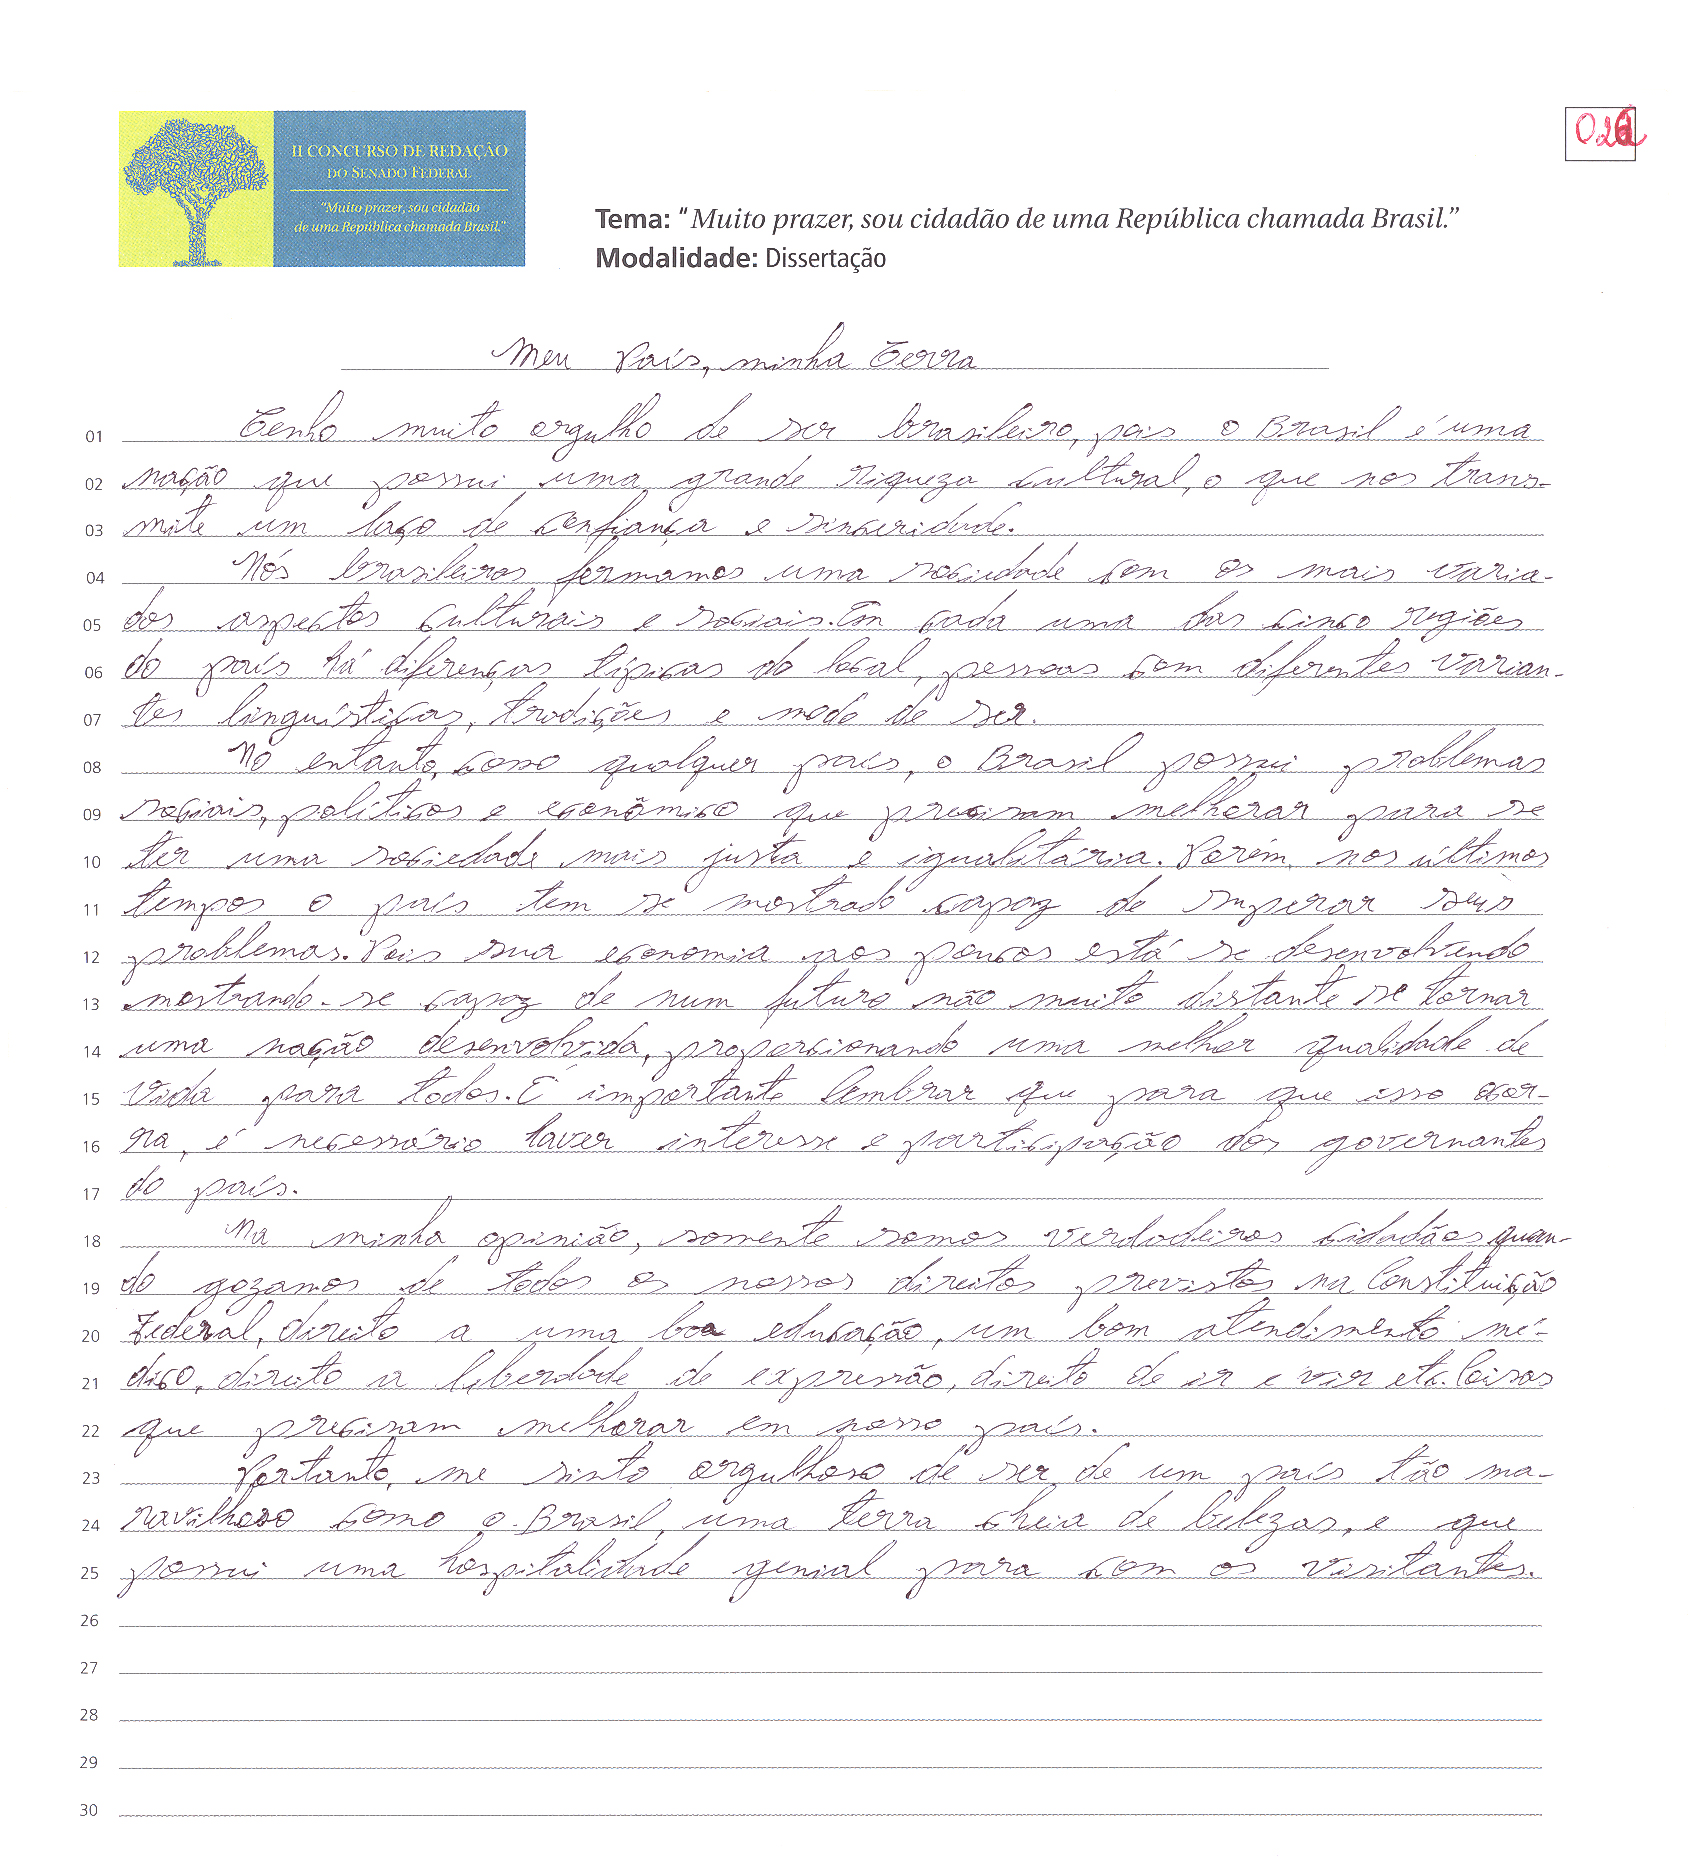 II CONCURSO DE REDAÇÃO
DO SENADO FEDERAL
"Muito prazer, sou cidadão
de uma República chamada Brasil."
Tema: "Muito prazer, sou cidadão de uma República chamada Brasil."
Modalidade: Dissertação
Meu País, minha Terra
01 Tenho muito orgulho de ser brasileiro, pois o Brasil é uma
02 nação que possui uma grande riqueza cultural, o que nos trans-
03 mite um laço de confiança e sinceridade.
04 Nós brasileiros formamos uma sociedade com os mais varia-
05 dos aspectos culturais e sociais. Em cada uma das cinco regiões
06 do país há diferenças típicas do local, pessoas com diferentes varian-
07 tes linguísticas, tradições e modo de ser.
08 No entanto, como qualquer país, o Brasil possui problemas
09 sociais, políticos e econômico que precisam melhorar para se
10 ter uma sociedade mais justa e igualitária. Porém, nos últimos
11 tempos o país tem se mostrado capaz de superar seus
12 problemas. Pois sua economia aos poucos está se desenvolvendo
13 mostrando-se capaz de num futuro não muito distante se tornar
14 uma nação desenvolvida, proporcionando uma melhor qualidade de
15 vida para todos. É importante lembrar que para que isso ocor-
16 ra, é necessário haver interesse e participação dos governantes
17 do país.
18 Na minha opinião, somente somos verdadeiros cidadãos quan-
19 do gozamos de todos os nossos direitos previstos na Constituição
20 Federal, direito a uma boa educação, um bom atendimento mé-
21 dico, direito a liberdade de expressão, direito de ir e vir etc. Coisas
22 que precisam melhorar em nosso país.
23 Portanto, me sinto orgulhoso de ser de um país tão ma-
24 ravilhoso como o Brasil, uma terra cheia de belezas, e que
25 possui uma hospitalidade genial para com os visitantes.
26
27
28
29
30